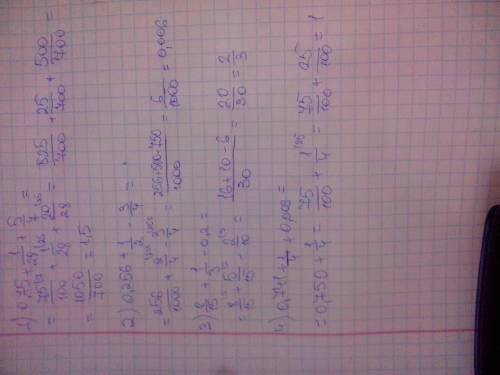 1) 0,75 + 1/28 + 5/7 =
= 75/100 + 1/28 + 20/28 = 525/700 + 25/700 + 500/700 =
= 1050/700 = 1,5
2) 0,256 + 1/2 - 3/4 =
= 256/1000 + 1/2 - 3/4 = 256+500-750/1000 = 6/1000 = 0,006
3) 8/15 + 1/3 - 0,2 =
= 8/15 + 5/15 - 2/10 = 16+10-6/30 = 20/30 = 2/3
4) 0,741 + 1/4 + 0,009 =
= 0,750 + 1/4 = 75/100 + 1/4 = 75/100 + 25/100 = 1